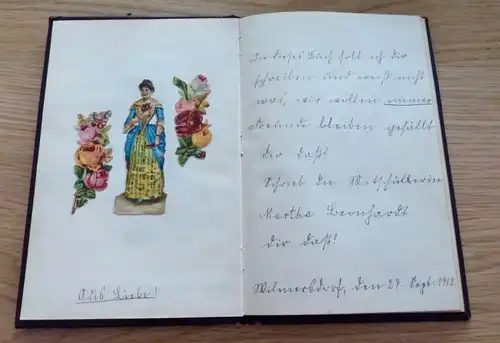 Aus Liebe!
In dieses Buch soll ich dir
schreiben und weiß nicht
was, wir wollen immer
Freunde bleiben gefällt
dir daß?
Schrieb die Mitschülerin
Martha Leonhardt
dir daß!
Wilmersdorf, den 27. Sept. 1912.